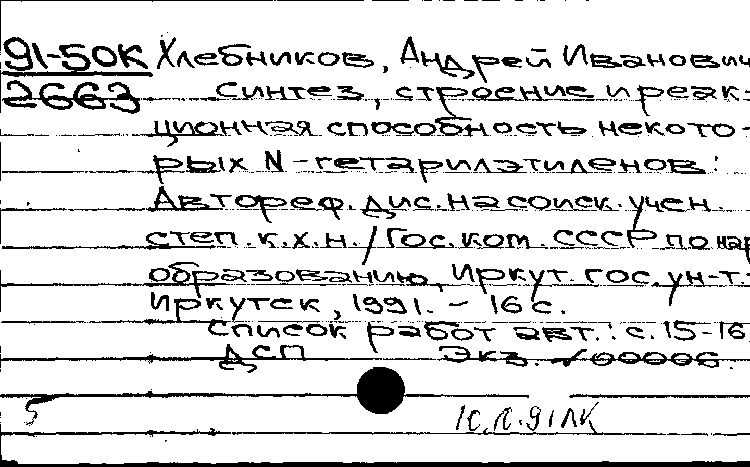 91-50К Хлебников, Андрей Иванович
2663 Синтез, строение и реак-
ционная способность некото-
рых N-гетарилэтиленов:
Автореф. дис. на соиск. учен.
степ. к.х.н. / Гос. ком. СССР по нар
образованию, Иркут. гос. ун-т.-
Иркутск, 1991. - 16 с.
Список работ авт.: с. 15-16
ДСП Экз. √00006.
5